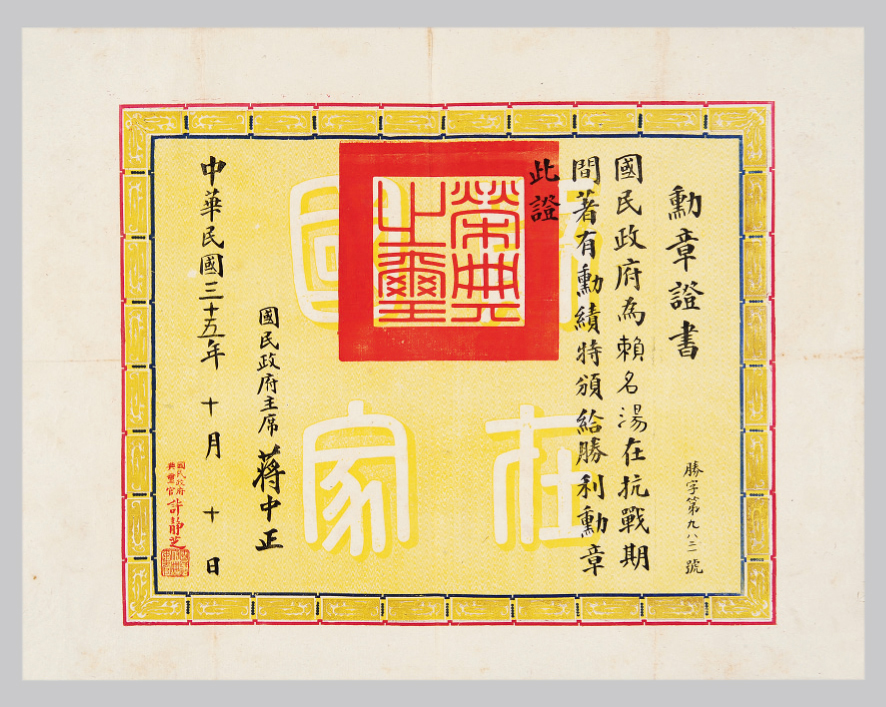 勳章證書
勝字第九八 號
國民政府為賴名湯在抗戰期
間著有勳績特頒給勝利勳章
此證
榮典
之璽
在
國家
國民政府主席 蔣中正
中華民國三十五年 十月 十日
國民政府
典璽官 許靜芝